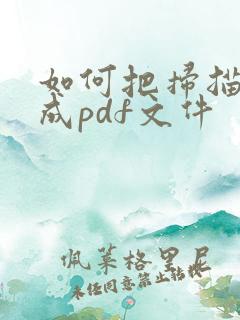 如何把扫描
成pdf文件
佩莱格里尼
未经同意禁止转载